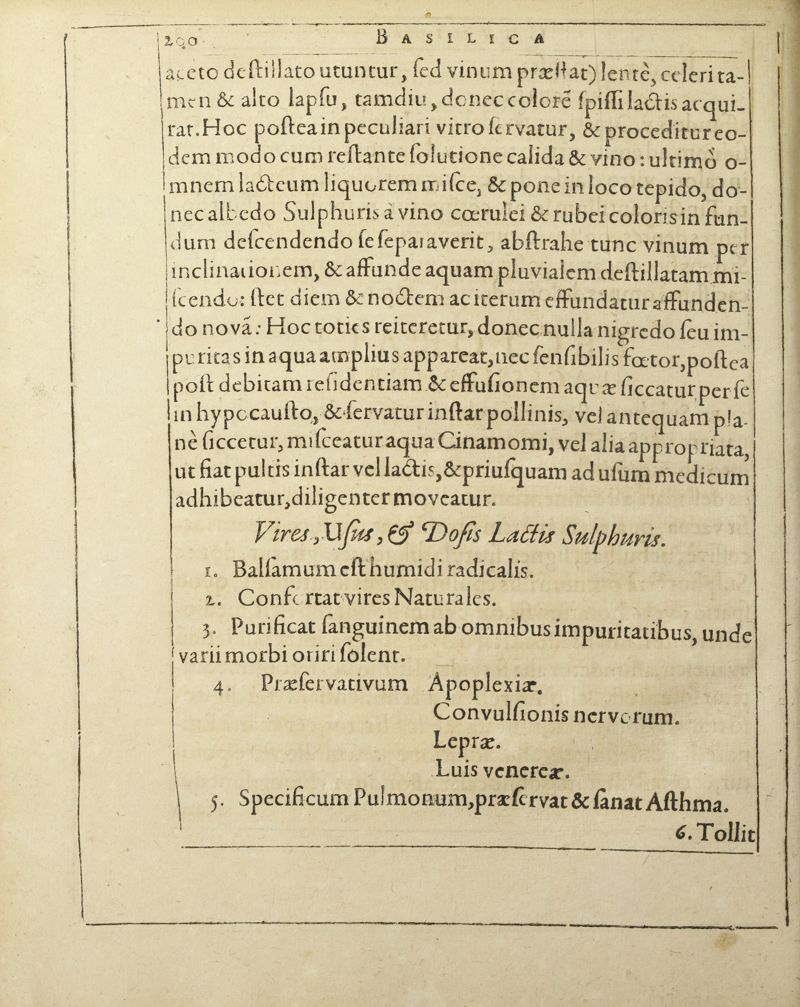 200 BASILICA
aceto deſtillato utuntur, ſed vinum præſtat) lentè, celeri ta-
men & alto lapſu, tamdiu, donec colorē ſpiſſi lactis acqui-
rat. Hoc poſtea in peculiari vitro ſervatur, & proceditur eo-
dem modo cum reſtante ſolutione calida & vino: ultimò o-
mnem lacteum liquorem miſce, & pone in loco tepido, do-
nec albedo Sulphuris à vino cœrulei & rubei coloris in fun-
dum deſcendendo ſe ſeparaverit, abſtrahe tunc vinum per
inclinationem, & affunde aquam pluvialem deſtillatam mi-
ſcendo: ſtet diem & noctem ac iterum effundatur affunden-
do nova: Hoc toties reiteretur, donec nulla nigredo ſeu im-
puritas in aqua amplius appareat, nec ſenſibilis fœtor, poſtea
poſt debitam reſidentiam & effuſionem aquæ ſiccatur per ſe
in hypocauſto, & ſervatur inſtar pollinis, vel antequam pla-
nè ſiccetur, miſceatur aqua Cinamomi, vel alia appropriata,
ut fiat pultis inſtar vel lactis, & priuſquam ad uſum medicum
adhibeatur, diligenter moveatur.
Vires, Uſus, & Doſis Lactis Sulphuris.
1. Balſamum eſt humidi radicalis.
2. Confortat vires Naturales.
3. Purificat ſanguinem ab omnibus impuritatibus, unde
varii morbi oriri ſolent.
4. Præſervativum Apoplexiæ.
Convulſionis nervorum.
Lepræ.
Luis venereæ.
5. Specificum Pulmonum, præſervat & ſanat Aſthma.
6. Tollit